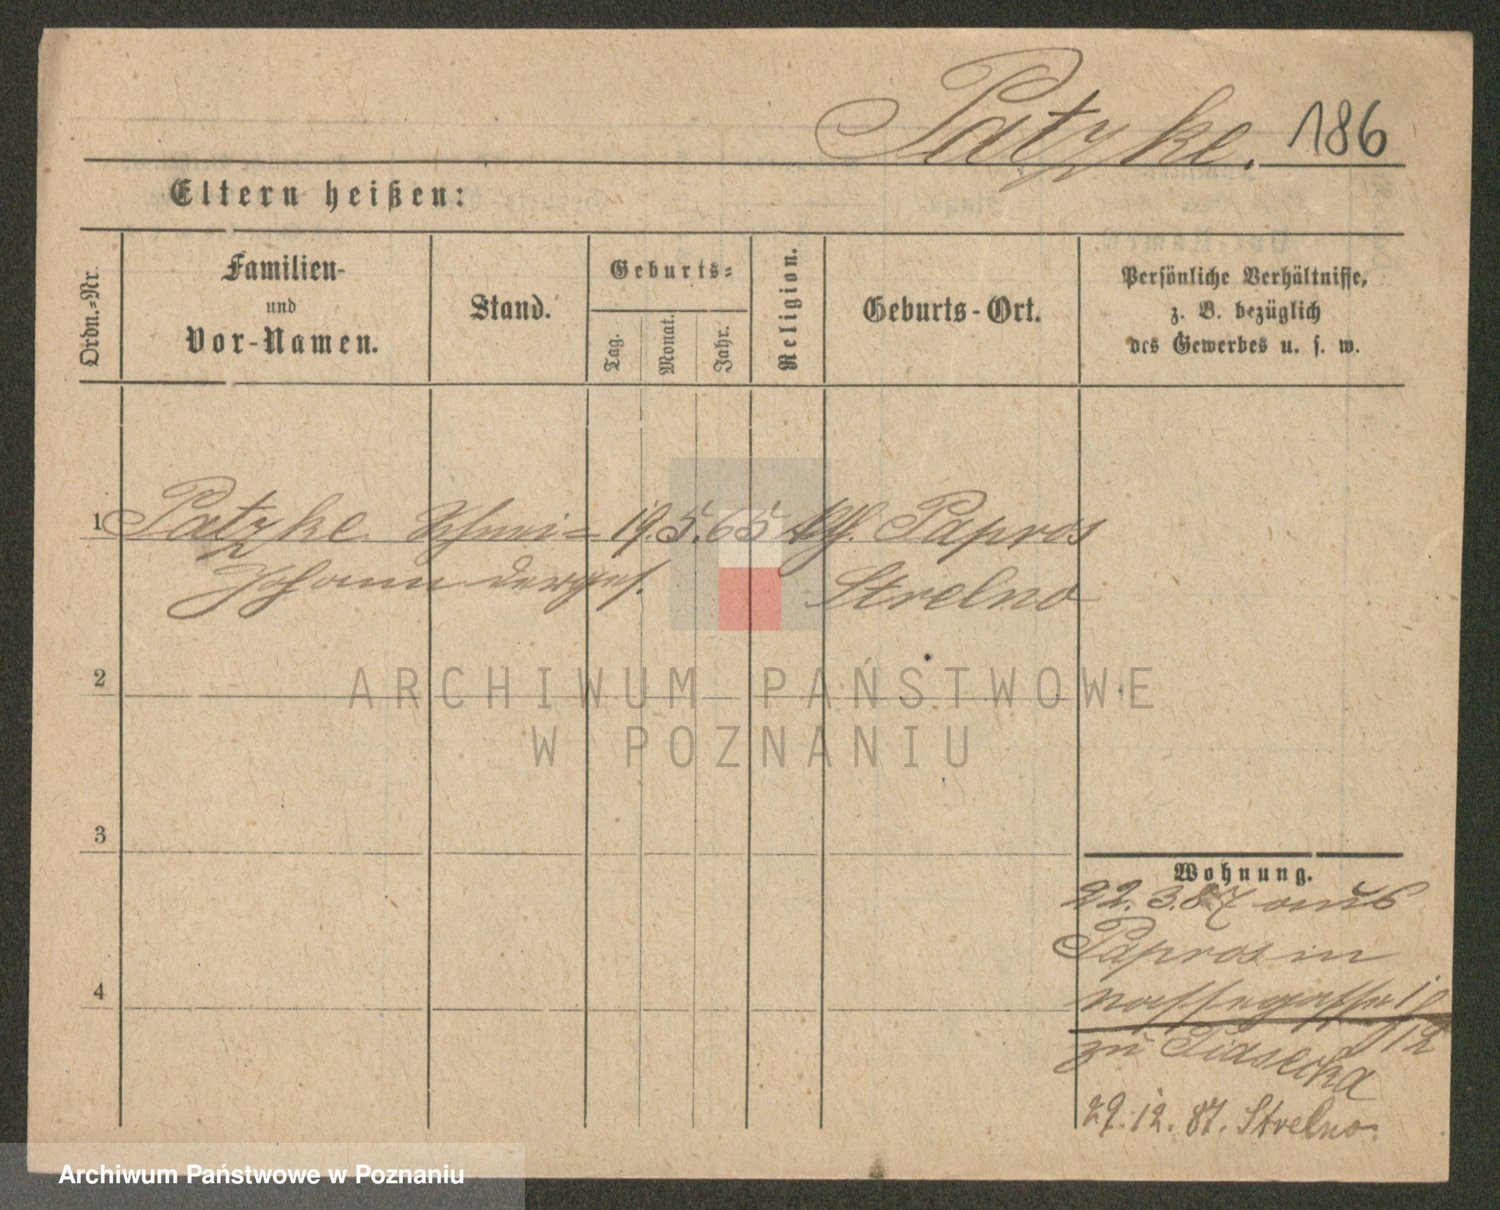 Patzke. 186
Eltern heißen:
Ordn.-Nr.
Familien-
und
Vor-Namen.
Stand.
Geburts-
Tag.
Monat.
Jahr.
Religion.
Geburts-Ort.
Persönliche Verhältnisse,
z. B. bezüglich
des Gewerbes u. s. w.
1 Patzke Schmi= 19. 5. 65 Papros
Johann derges. Strelno
2
3
4
Wohnung.
22.3.87 aus
Papros in
zu Piasecka
29.12.87. Strelno.
ARCHIWUM PAŃSTWOWE
W POZNANIU
Archiwum Państwowe w Poznaniu